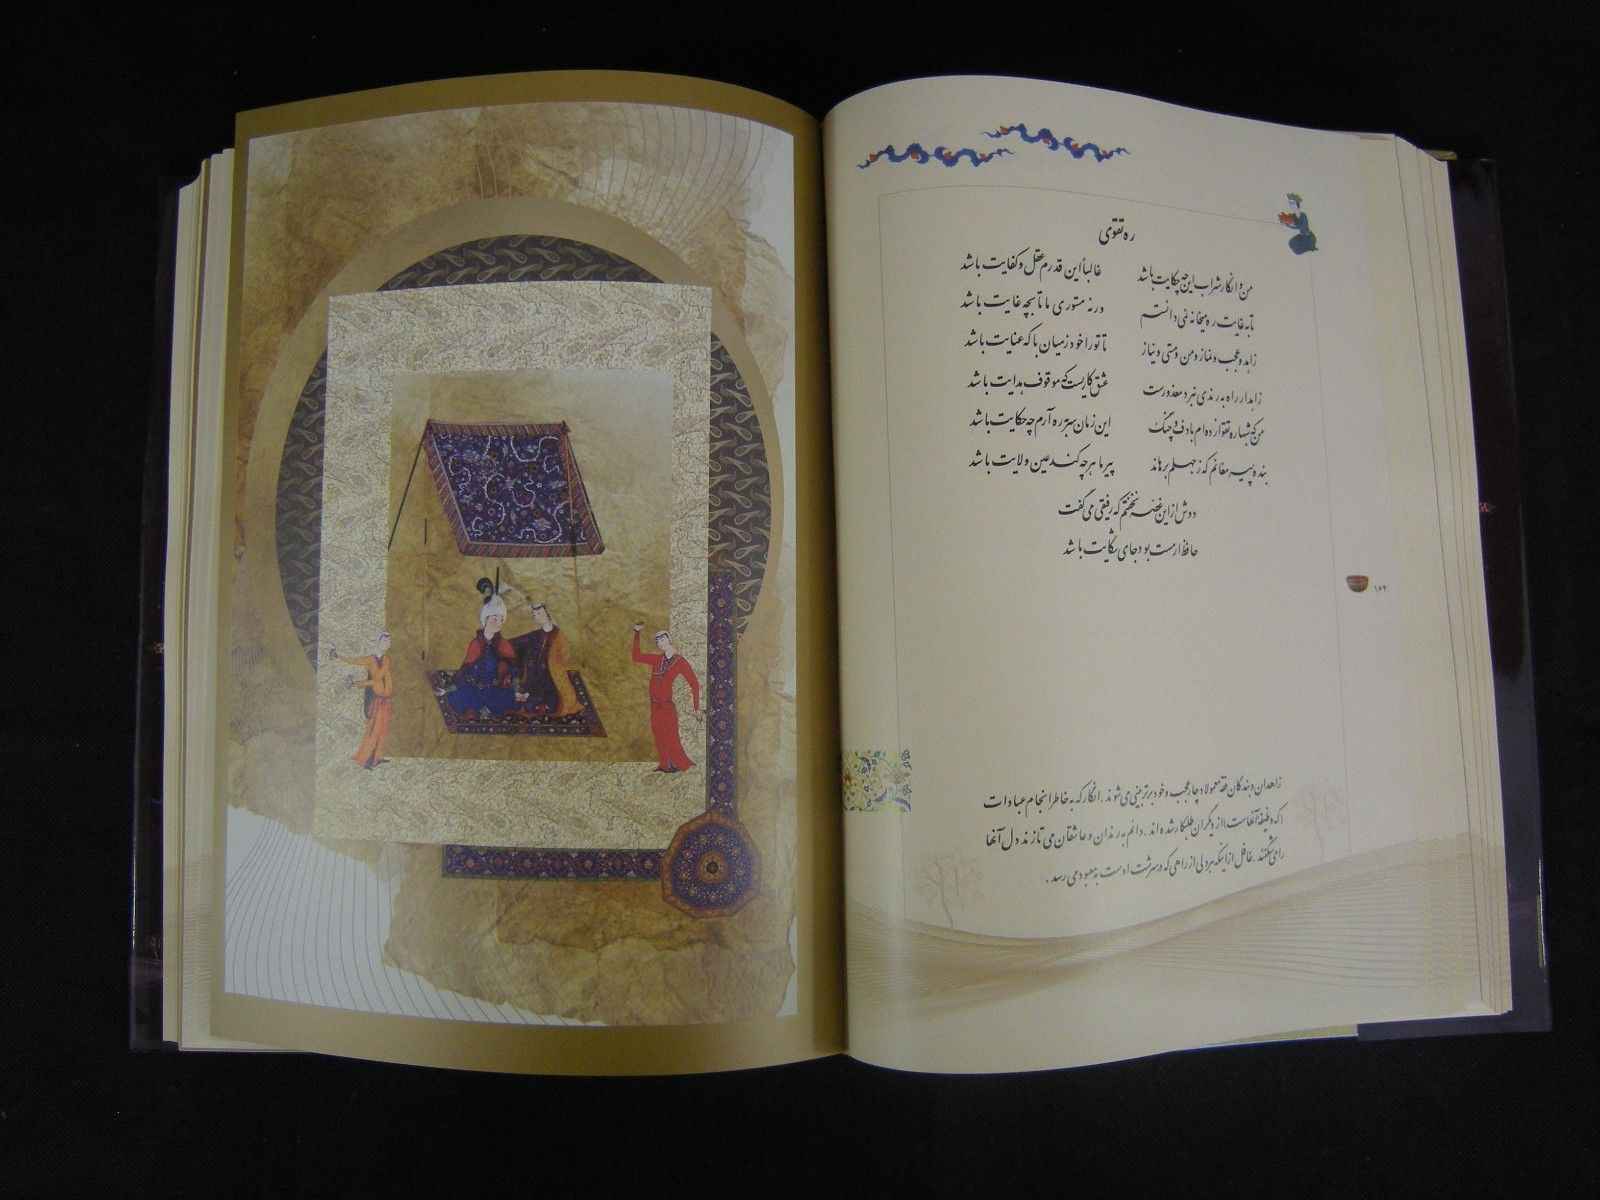 ره تقوی
من و انکار شراب این چه حکایت باشد غالباً این قدرم عقل و کفایت باشد
تا به غایت ره میخانه نمی دانستم ورنه مستوری ما تا بچه غایت باشد
زاهد و عجب و نماز و من و مستی و نیاز تا تو را خود ز میان با که عنایت باشد
زاهد ار راه به رندی نبرد معذورست عشق کاریست که موقوف هدایت باشد
من که شبها ره تقوا زده ام با دف و چنگ این زمان سر به ره آرم چه حکایت باشد
بنده پیر مغانم که ز جهلم برهاند پیر ما هر چه کند عین ولایت باشد
دوش از این غصه نخفتم که رفیقی می گفت
حافظ ار مست بود جای شکایت باشد
۱۵۲
زاهدان و بندگان معمولا دچار عجب و خود برتربینی می شوند. انگار که به خاطر انجام عبادات
که وظیفه آنهاست، از دیگران طلبکار شده اند. دائم به رندان و عاشقان می تازند دل آنها
را می شکنند. غافل از اینکه هر دلی از راهی که در سرشت اوست به معبود می رسد.